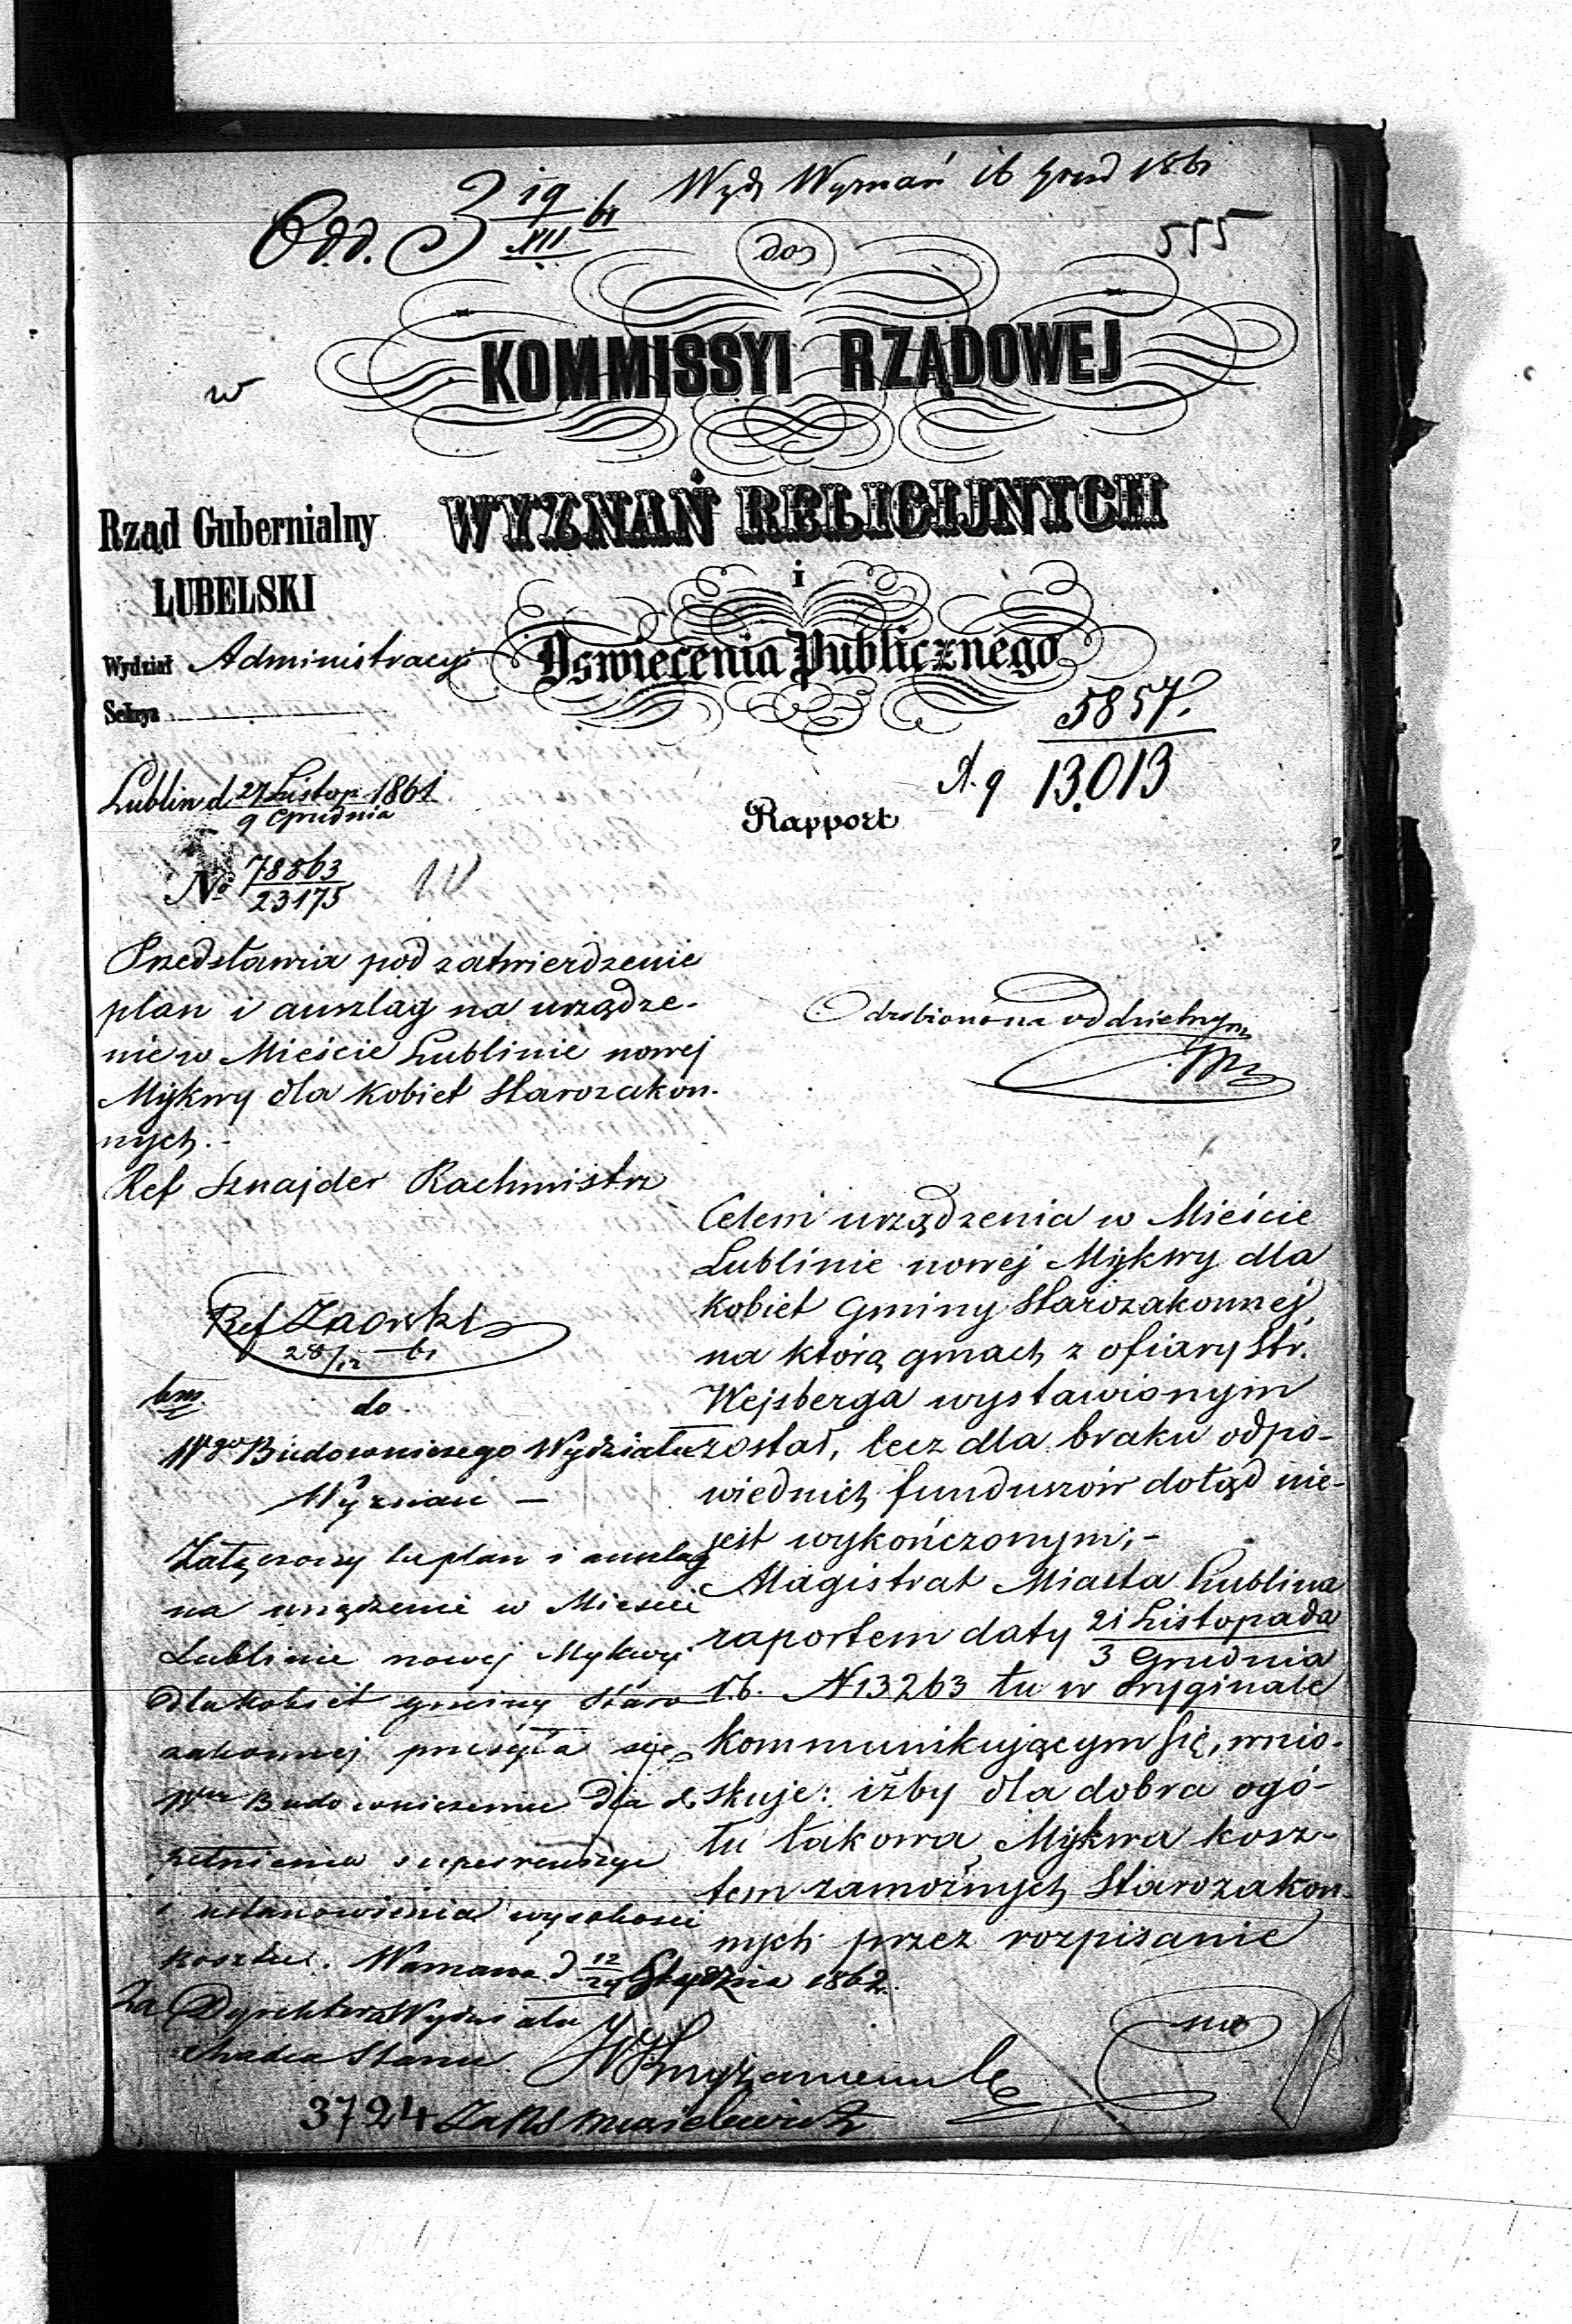 Wydz Wyznań 16 grud 1861
Odd. 3 19/XII 61
555
do
KOMMISSYI RZĄDOWEJ
w
WYZNAŃ RELIGIJNYCH
i
Oswiecenia Publicznego
Rząd Gubernialny
LUBELSKI
Wydział Administracyi
Sekcya
5857.
13.013
Lublin d. 27 Listop. 1861
9 Grudnia
Rapport
No 78863
23175
Przedstawia pod zatwierdzenie
plan i anszlag na urządze-
nie w Mieście Lublinie nowej
Mykwy dla kobiet Starozakon-
nych.-
Ref Sznajder Rachmistrz
Ref
28/12 61
do
Wgo Budowniczego Wydziału
Wyznań —
Załączony tu plan i anszlag
na urządzenie w Mieście
Lublinie nowej Mykwy
dla kobiet gminy Staro
zakonnej przesyła się
Wmu Budowniczemu dla do
pełnienia superrewizyi
i ustanowienia wysokości
kosztu. Warszawa d 12/24 Stycznia 1862.
Za Dyrektora Wydziału
Radca Stanu
3724
Celem urządzenia w Mieście
Lublinie nowej Mykwy dla
kobiet Gminy Starozakonnej
na którą gmach z ofiary Str.
Wejsberga wystawionym
został, lecz dla braku odpo-
wiednich funduszów dotąd nie-
jest wykończonym;-
Magistrat Miasta Lublina
raportem daty 21 Listopada
3 Grudnia
r.b. N 13263 tu w Oryginale
kommunikującym się, wnio-
skuje: iżby dla dobra ogó-
łu takowa Mykwa kosz-
tem zamożnych Starozakon-
nych przez rozpisanie